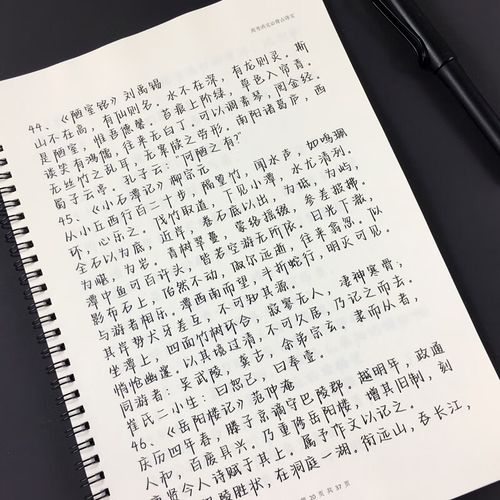 高考语文必背古诗文
44、《陋室铭》刘禹锡
山不在高，有仙则名。水不在深，有龙则灵。斯
是陋室，惟吾德馨。苔痕上阶绿，草色入帘青。
谈笑有鸿儒，往来无白丁。可以调素琴，阅金经。
无丝竹之乱耳，无案牍之劳形。南阳诸葛庐，西
蜀子云亭。孔子云：“何陋之有？”
45、《小石潭记》柳宗元
从小丘西行百二十步，隔篁竹，闻水声，如鸣珮
环，心乐之。伐竹取道，下见小潭，水尤清冽。
全石以为底，近岸，卷石底以出，为坻，为屿，
为嵁，为岩。青树翠蔓，蒙络摇缀，参差披拂。
潭中鱼可百许头，皆若空游无所依。日光下澈，
影布石上，佁然不动，俶尔远逝，往来翕忽。似
与游者相乐。潭西南而望，斗折蛇行，明灭可见。
其岸势犬牙差互，不可知其源。
坐潭上，四面竹树环合，寂寥无人，凄神寒骨，
悄怆幽邃。以其境过清，不可久居，乃记之而去。
同游者：吴武陵，龚古，余弟宗玄。隶而从者，
崔氏二小生：曰恕己，曰奉壹。
46、《岳阳楼记》范仲淹
庆历四年春，滕子京谪守巴陵郡。越明年，政通
人和，百废具兴。乃重修岳阳楼，增其旧制，刻
贤今人诗赋于其上。属予作文以记之。
胜状，在洞庭一湖。衔远山，吞长江，
20 页 共 37 页